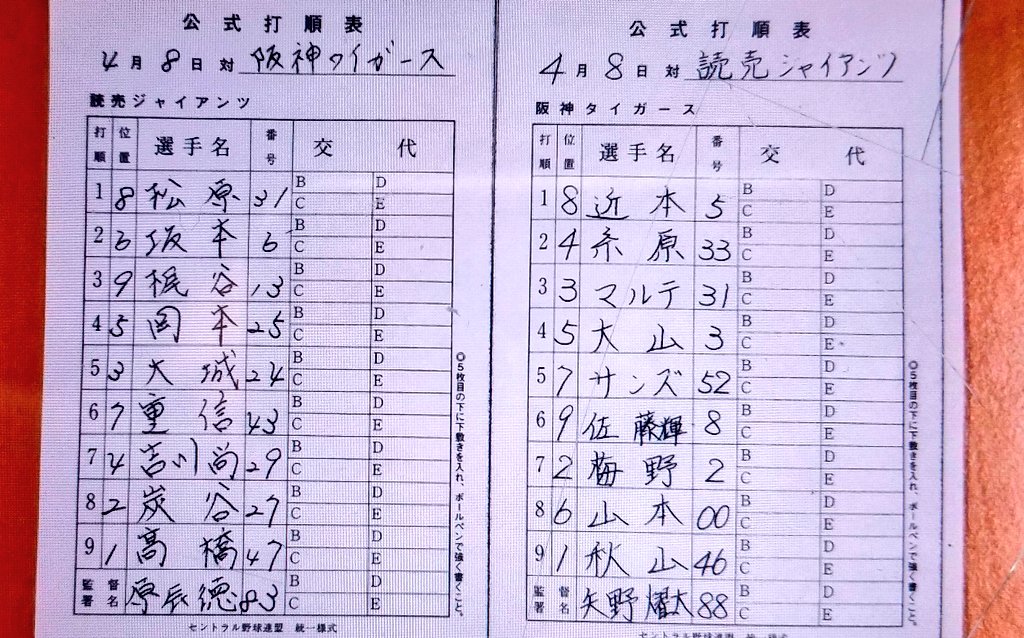 公式打順表
4月8日対 阪神タイガース
読売ジャイアンツ
打順 位置 選手名 番号 交代
1 8 松原 31 B D C E
2 6 坂本 6 B D C E
3 9 梶谷 13 B D C E
4 5 岡本 25 B D C E
5 3 大城 24 B D C E
6 7 重信 43 B D C E
7 4 吉川尚 29 B D C E
8 2 炭谷 27 B D C E
9 1 高橋 47 B D C E
監督署名 原辰徳 83 B D C E
セントラル野球連盟 統一様式
◎5枚目の下に下敷きを入れ、ボールペンで強く書くこと。
公式打順表
4月8日対 読売ジャイアンツ
阪神タイガース
打順 位置 選手名 番号 交代
1 8 近本 5 B D C E
2 4 糸原 33 B D C E
3 3 マルテ 31 B D C E
4 5 大山 3 B D C E
5 7 サンズ 52 B D C E
6 9 佐藤輝 8 B D C E
7 2 梅野 2 B D C E
8 6 山本 00 B D C E
9 1 秋山 46 B D C E
監督署名 矢野燿大 88 B D C E
セントラル野球連盟 統一様式
◎5枚目の下に下敷きを入れ、ボールペンで強く書くこと。